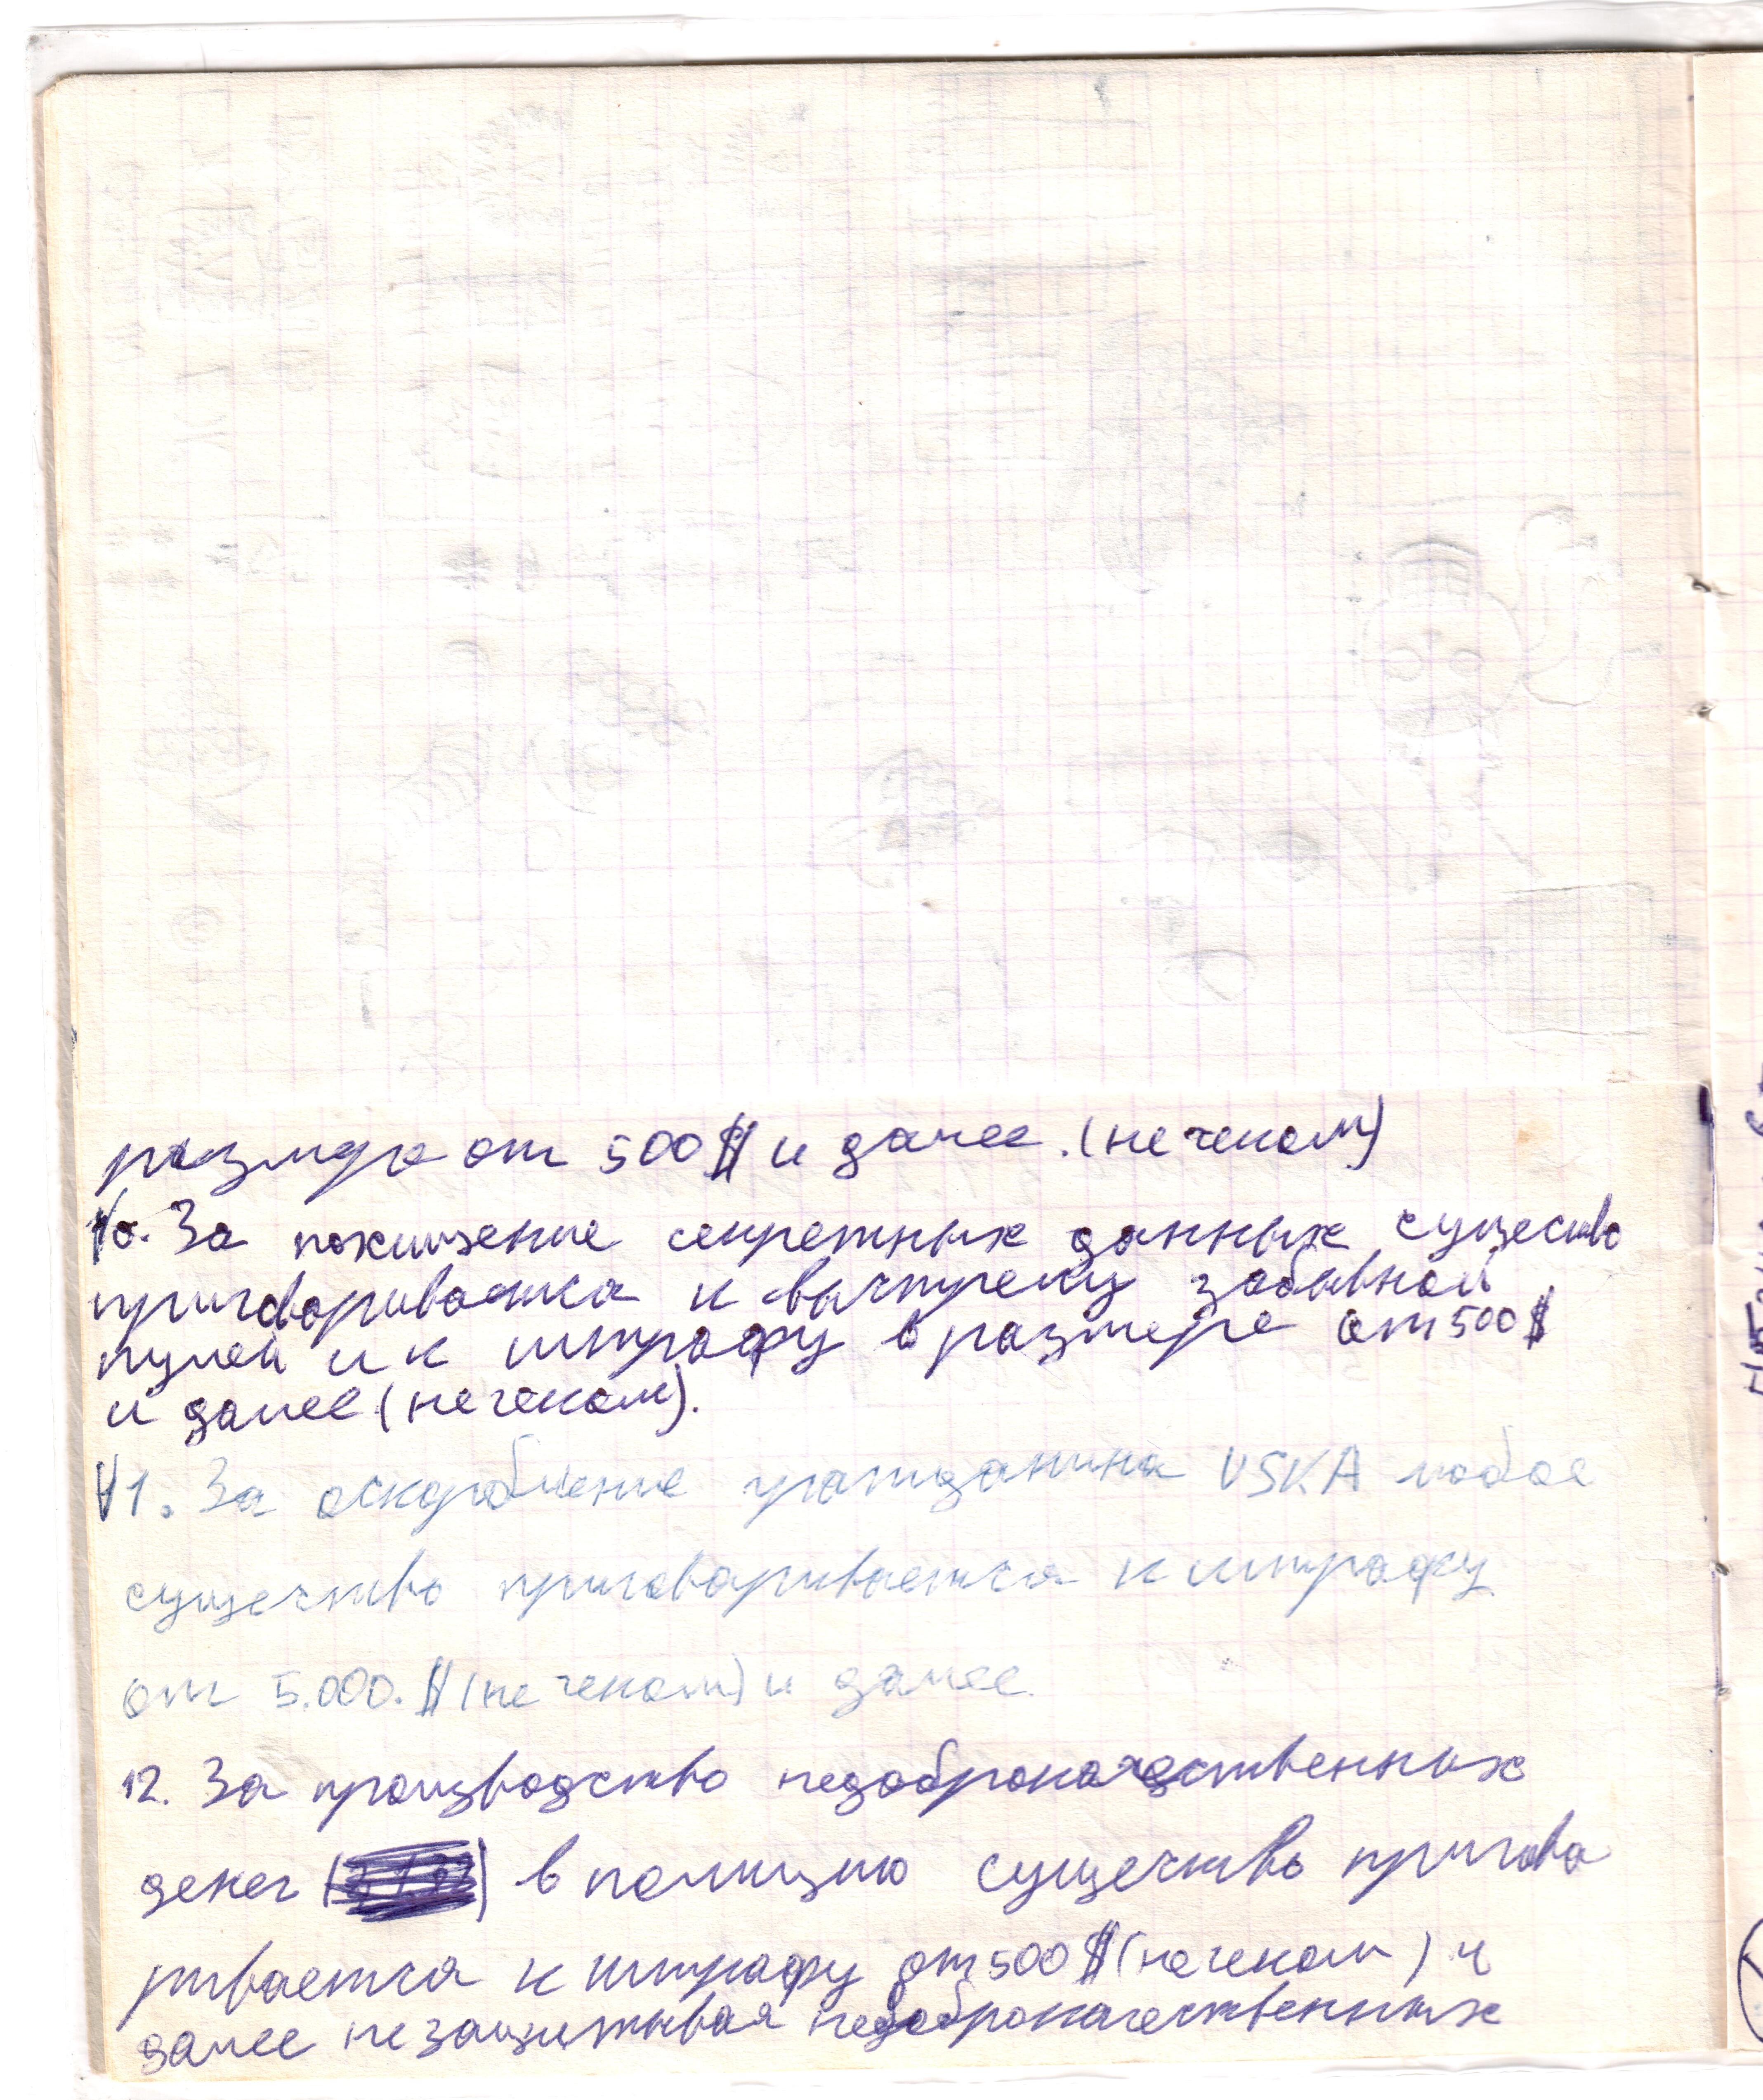 размере от 500$ и далее. (не чеком)
10. За похищение секретных данных существо
приговаривается к выстрелу забивной
пулей и к штрафу в размере от 500$
и далее (не чеком).
11. За оскорбление гражданина USKA любое
существо приговаривается к штрафу
от 5.000.$ (не чеком) и далее.
12. За производство недоброкачественных
денег в полицию существо пригова
ривается к штрафу от 500$ (не чеком) и
далее не защитывая недоброкачественных